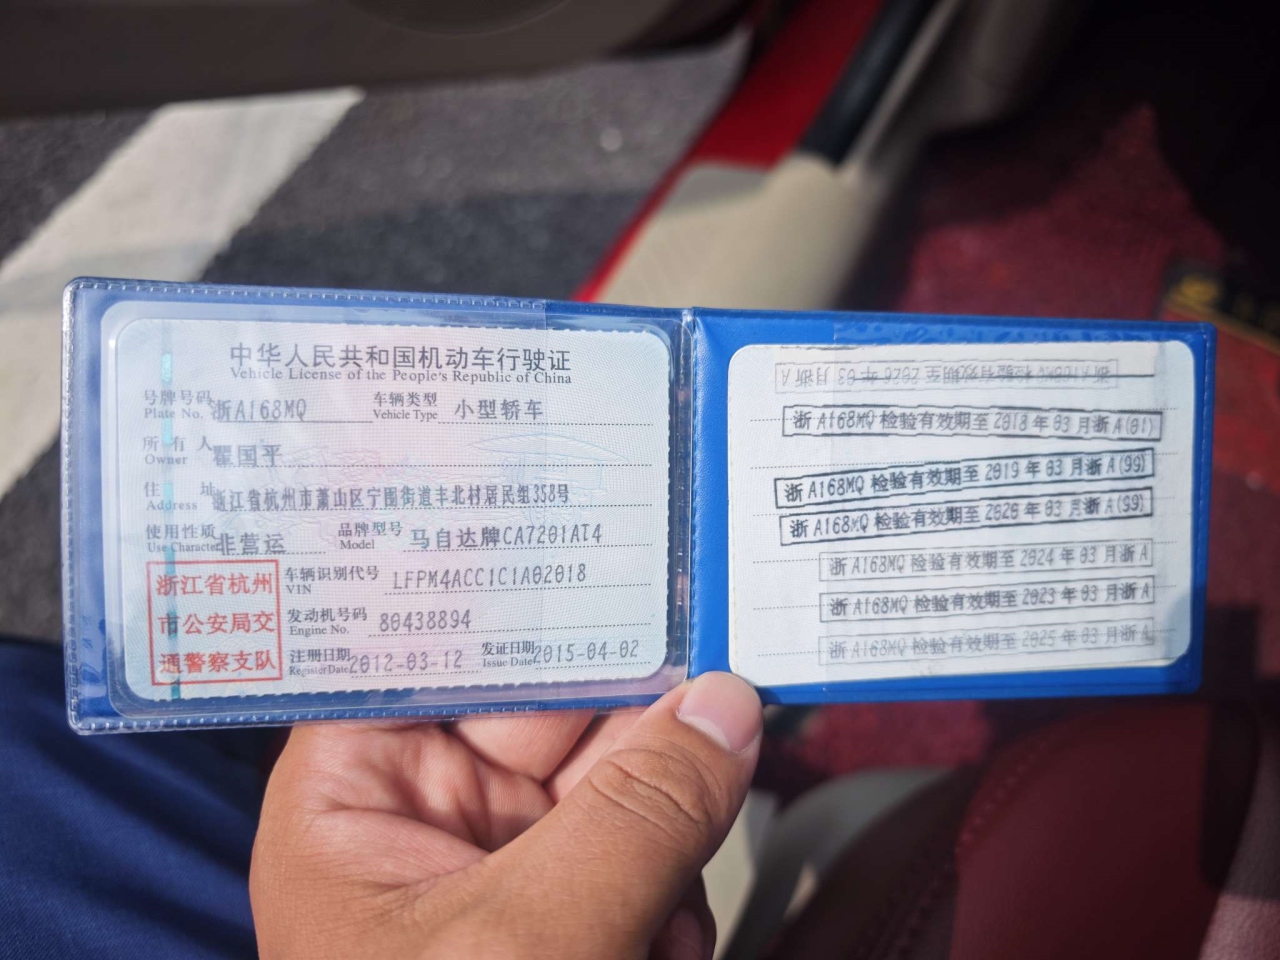 中华人民共和国机动车行驶证
Vehicle License of the People's Republic of China
号牌号码 浙A168MQ 车辆类型 小型轿车
Plate No. Vehicle Type
所有人 瞿国平
Owner
住址 浙江省杭州市萧山区宁围街道丰北村居民组358号
Address
使用性质 非营运 品牌型号 马自达牌CA7201AT4
Use Character Model
浙江省杭州
市公安局交
通警察支队
车辆识别代号 LFPM4ACC1C1A02018
VIN
发动机号码 80438894
Engine No.
注册日期 2012-03-12 发证日期 2015-04-02
Register Date Issue Date
浙A168MQ 检验有效期至 2026 年 03 月 浙A
浙A168MQ 检验有效期至 2018 年 03 月浙A(01)
浙A168MQ 检验有效期至 2019 年 03 月浙A(99)
浙A168MQ 检验有效期至 2020 年 03 月浙A(99)
浙A168MQ 检验有效期至 2024 年 03 月浙A
浙A168MQ 检验有效期至 2023 年 03 月浙A
浙A168MQ 检验有效期至 2025 年 03 月浙A